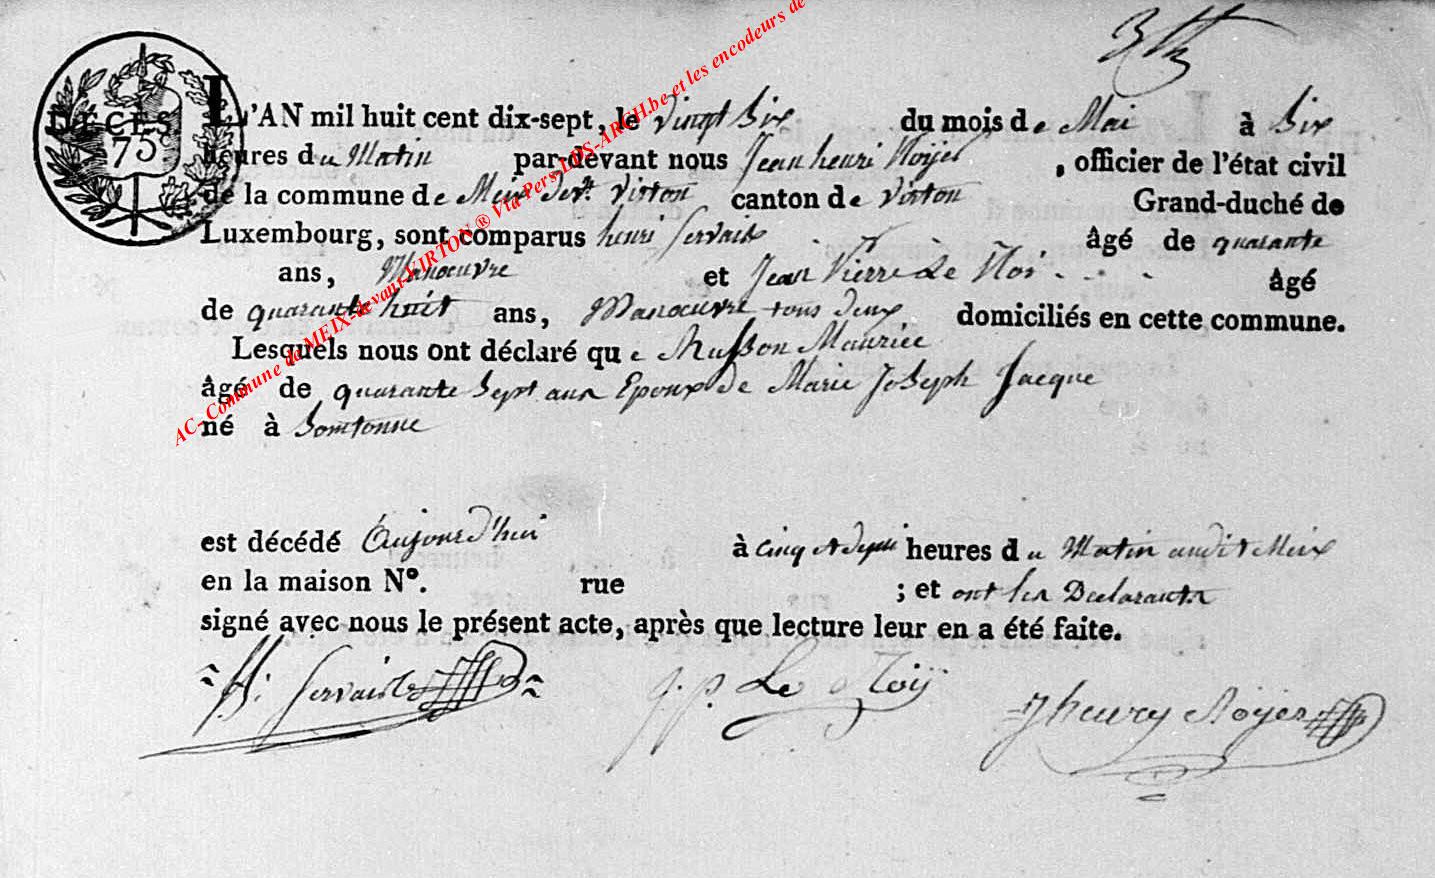 DÉCÈS
75c
L'AN mil huit cent dix-sept, le vingt Six du mois de Mai à Six
heures du Matin par-devant nous Jean henri Noyer, officier de l'état civil
de la commune de Meix devt. Virton canton de Virton Grand-duché de
Luxembourg, sont comparus henri Servais âgé de quarante
ans, Manoeuvre et Jean Pierre Le Noir âgé
de quarante huit ans, Manoeuvre tous deux domiciliés en cette commune.
Lesquels nous ont déclaré que Musson Maurice
âgé de quarante Sept ans Epoux de Marie Joseph Jacque
né à Somtonne
est décédé Aujourd'hui à cinq et demi heures du Matin audit Meix
en la maison N°. rue ; et ont les Declarants
signé avec nous le présent acte, après que lecture leur en a été faite.
h. Servais j. p. Le Noir Jhenry Noyer
AC- Commune de MEIX-devant-VIRTON ® Via Pers-LUS-ARCH.be et les encodeurs de